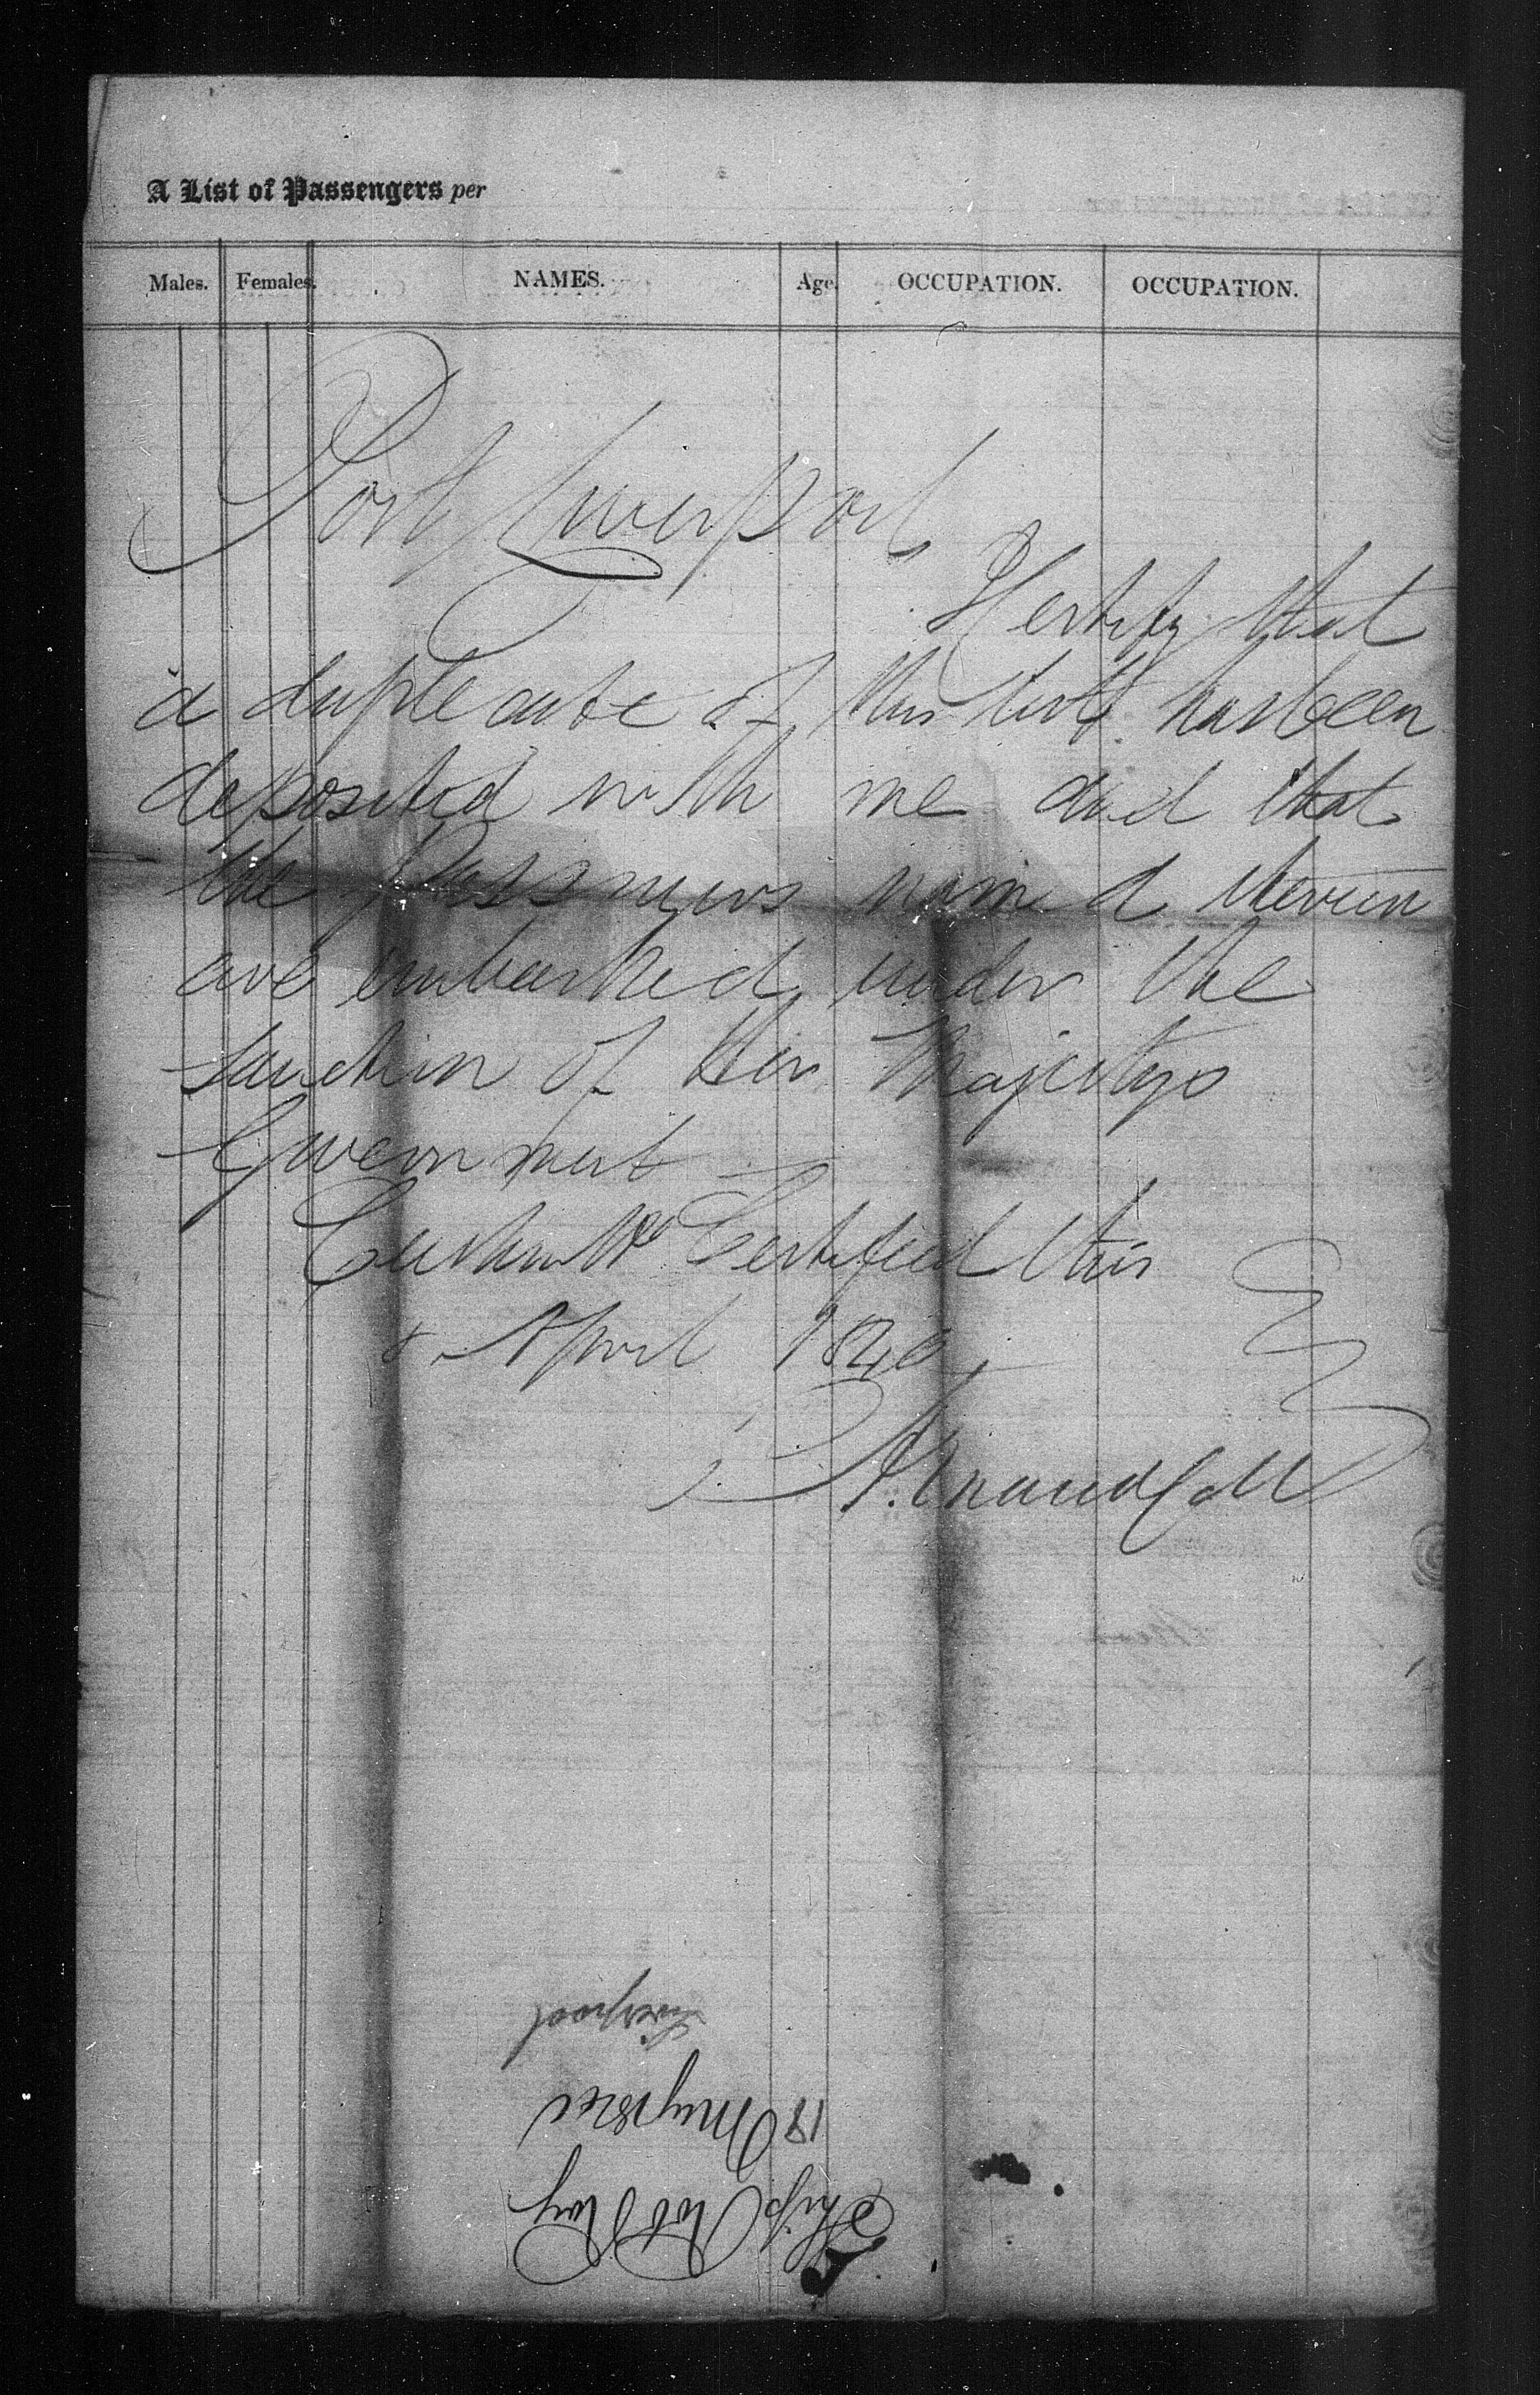 A List of Passengers per
Males. Females. NAMES. Age. OCCUPATION. OCCUPATION.
Port Liverpool
I Certify that
a duplicate of this list has been
deposited with me and that
the Passengers named therein
are embarked under the
sanction of Her Majestys
Government
Certified this
8 April 1840
Ship Rob Roy
18 May 1840
Liverpool